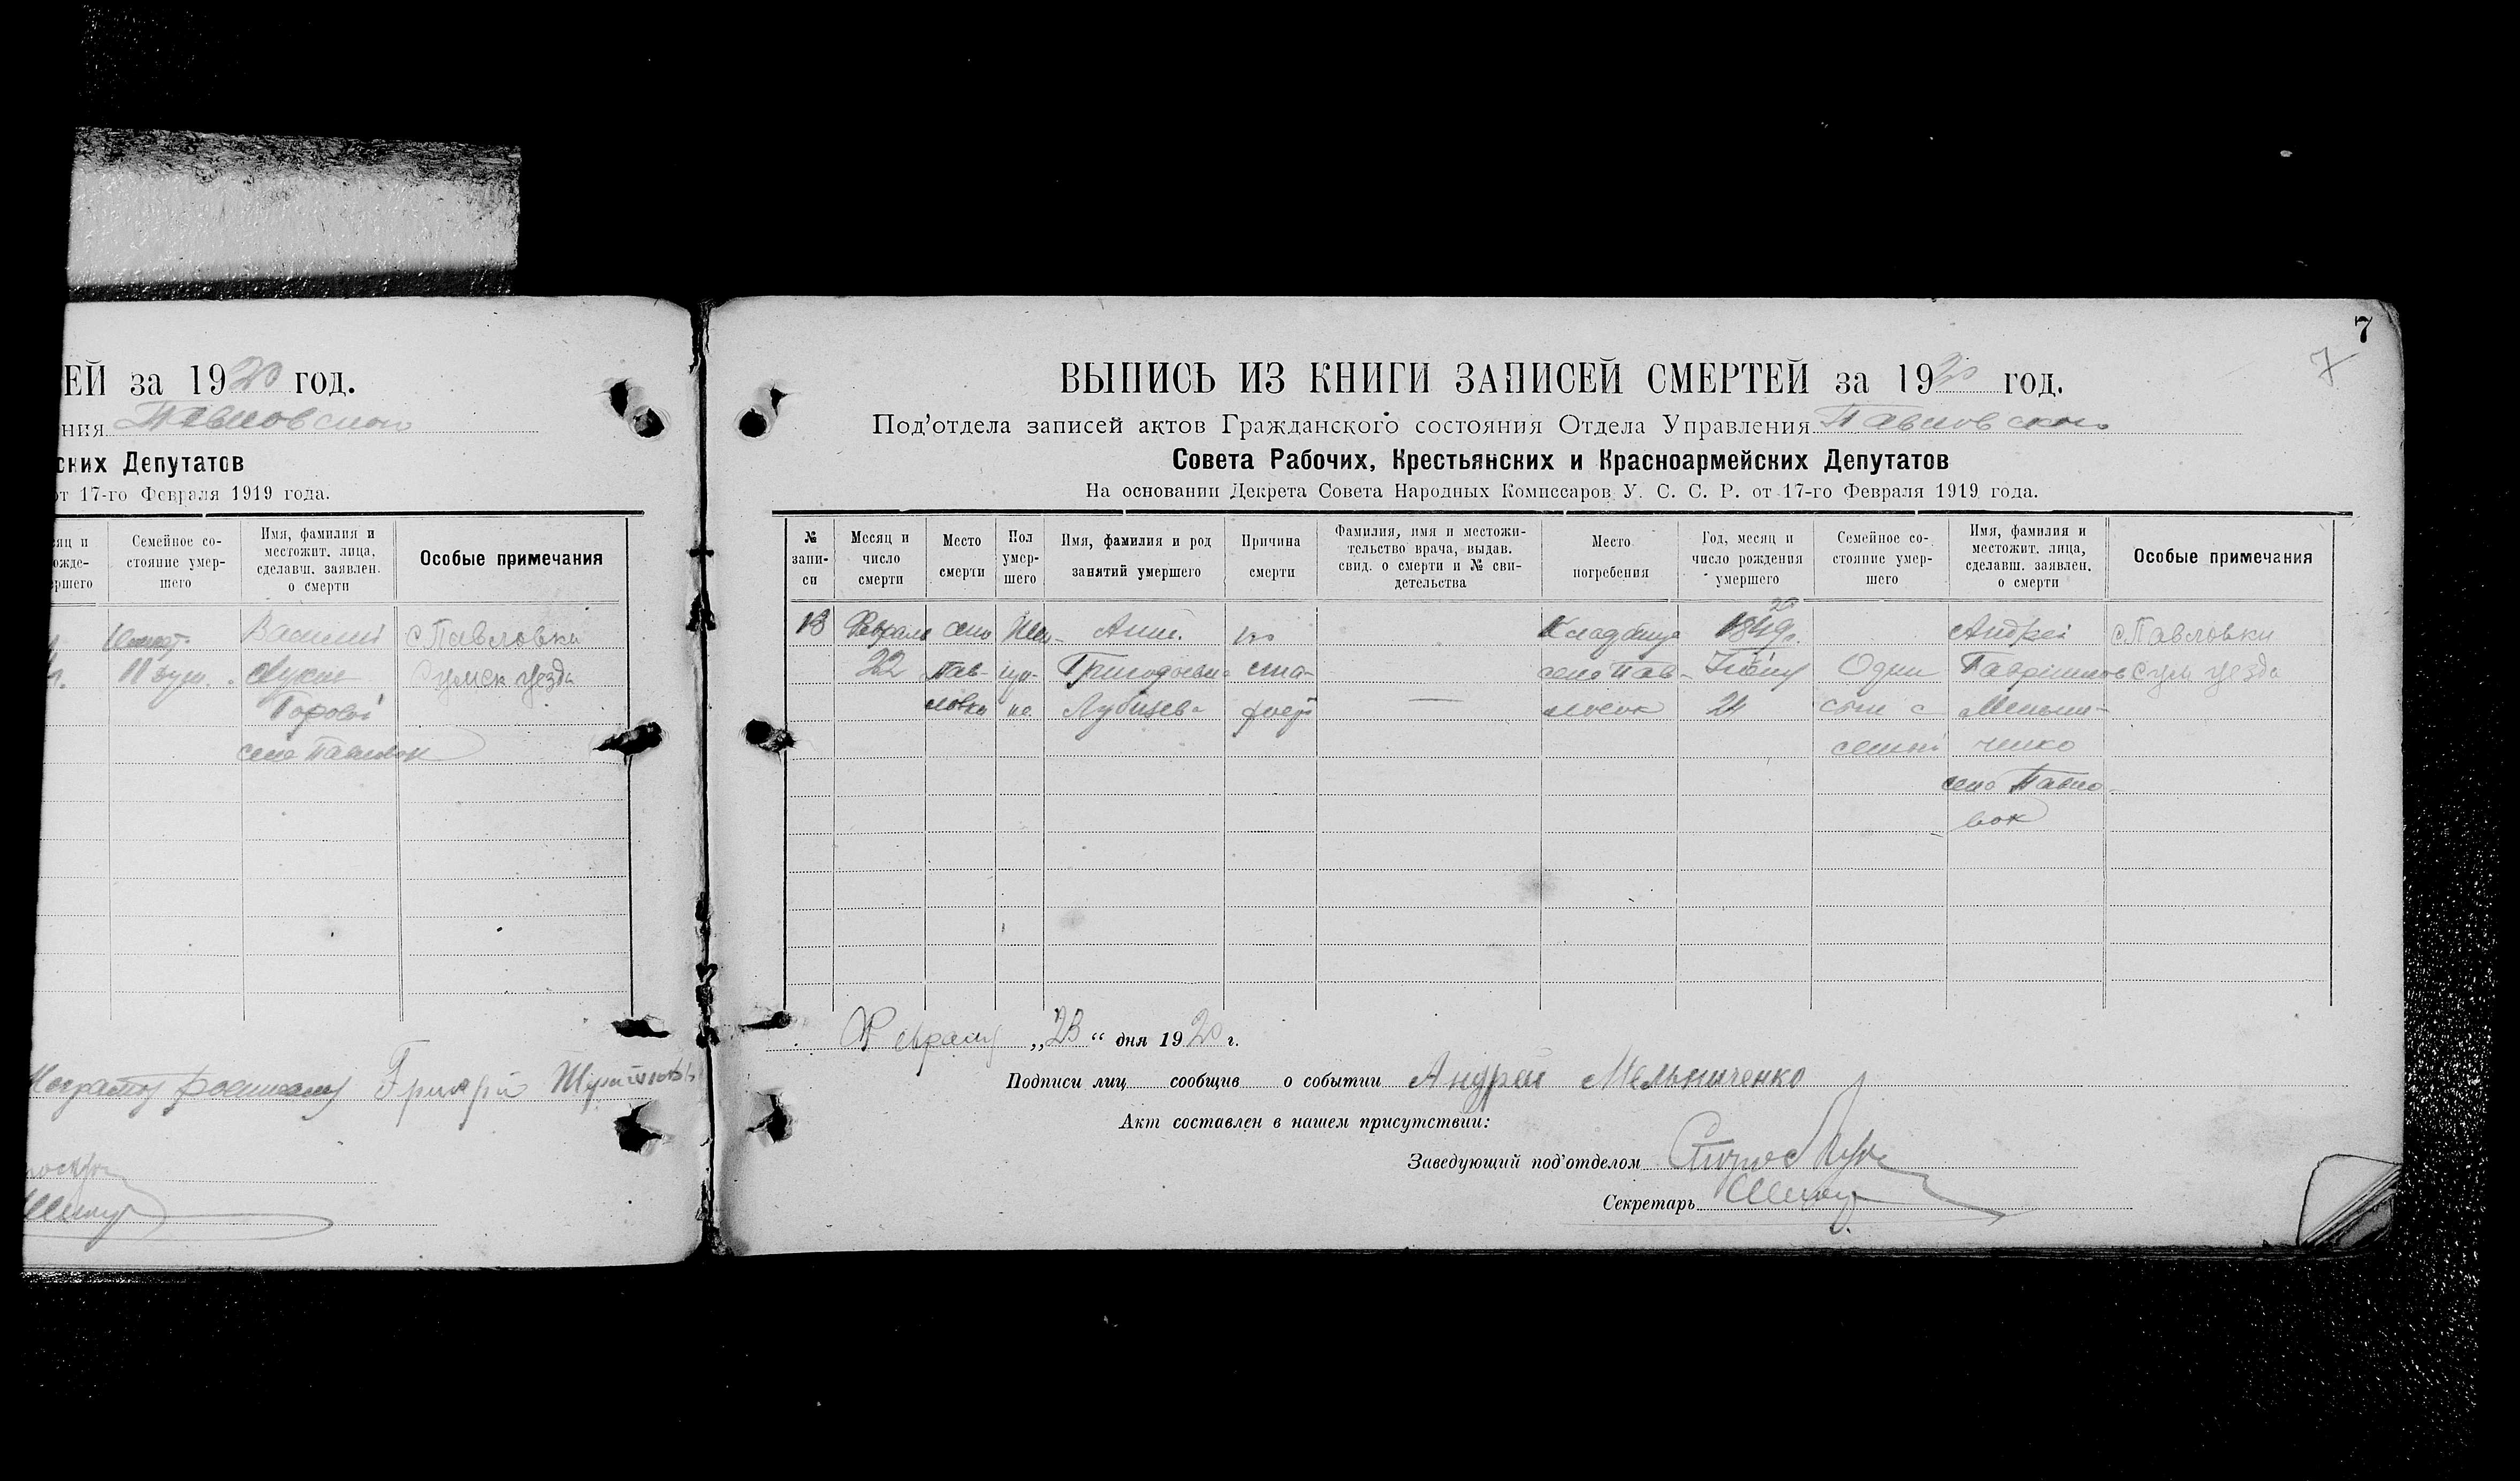 ЕЙ за 1920 год.
ния Павловского
ских Депутатов
от 17-го Февраля 1919 года.
яц и
ожде-
ршего
Семейное со-
стояние умер-
шего
Имя, фамилия и
местожит. лица,
сделавш. заявлен.
о смерти
Особые примечания
11 душ.
Василий
Лукич
Горовой
село Павловок
с Павловки
Сумск уезда
Григорій
7
7
ВЫПИСЬ ИЗ КНИГИ ЗАПИСЕЙ СМЕРТЕЙ за 1920 год.
Под'отдела записей актов Гражданского состояния Отдела Управления Павловского
Совета Рабочих, Крестьянских и Красноармейских Депутатов
На основании Декрета Совета Народных Комиссаров У. С. С. Р. от 17-го Февраля 1919 года.
№
запи-
си
Месяц и
число
смерти
Место
смерти
Пол
умер-
шего
Имя, фамилия и род
занятий умершего
Причина
смерти
Фамилия, имя и местожи-
тельство врача, выдав.
свид. о смерти и № сви-
детельства
Место
погребения
Год, месяц и
число рождения
умершего
Семейное со-
стояние умер-
шего
Имя, фамилия и
местожит. лица,
сделавш. заявлен.
о смерти
Особые примечания
13
Февраля
22
село
Пав-
ловка
Жен-
щи-
на
Анна
Григорьевна
по
ста-
рости
—
Кладбище
село Пав-
ловок
1849г.
Іюня
24
Один
сын с
семьи
Андрей
Гаврилов
Мельни-
ченко
село Павло-
вок
с Павловки
Сум уезда
Февраля „23“ дня 1920 г.
Подписи лиц сообщив о событии Андрей Мельниченко
Акт составлен в нашем присутствии:
Заведующий под'отделом
Секретарь